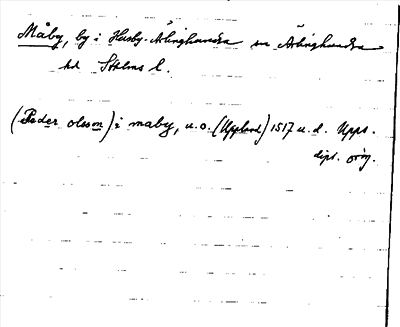 Måby, by i Husby-Ärlinghundra sn Ärlinghundra
hd Sthlms l.
(Peder olsson) i maby, u.o. (Uppland) 1517 u.d. Upps.
dipl. orig.